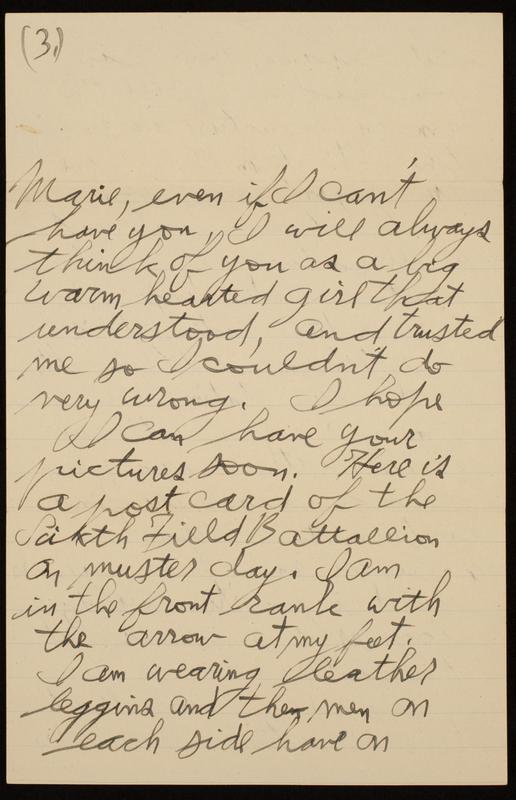 (3.)
Marie, even if I can't
have you, I will always
think of you as a big
warm hearted girl that
understood, and trusted
me so I couldn't do
very wrong. I hope
I can have your
pictures soon. Here is
a post card of the
Sixth Field Battallion
on muster day. I am
in the front rank with
the arrow at my feet.
I am wearing leather
leggins and the men on
each side have on